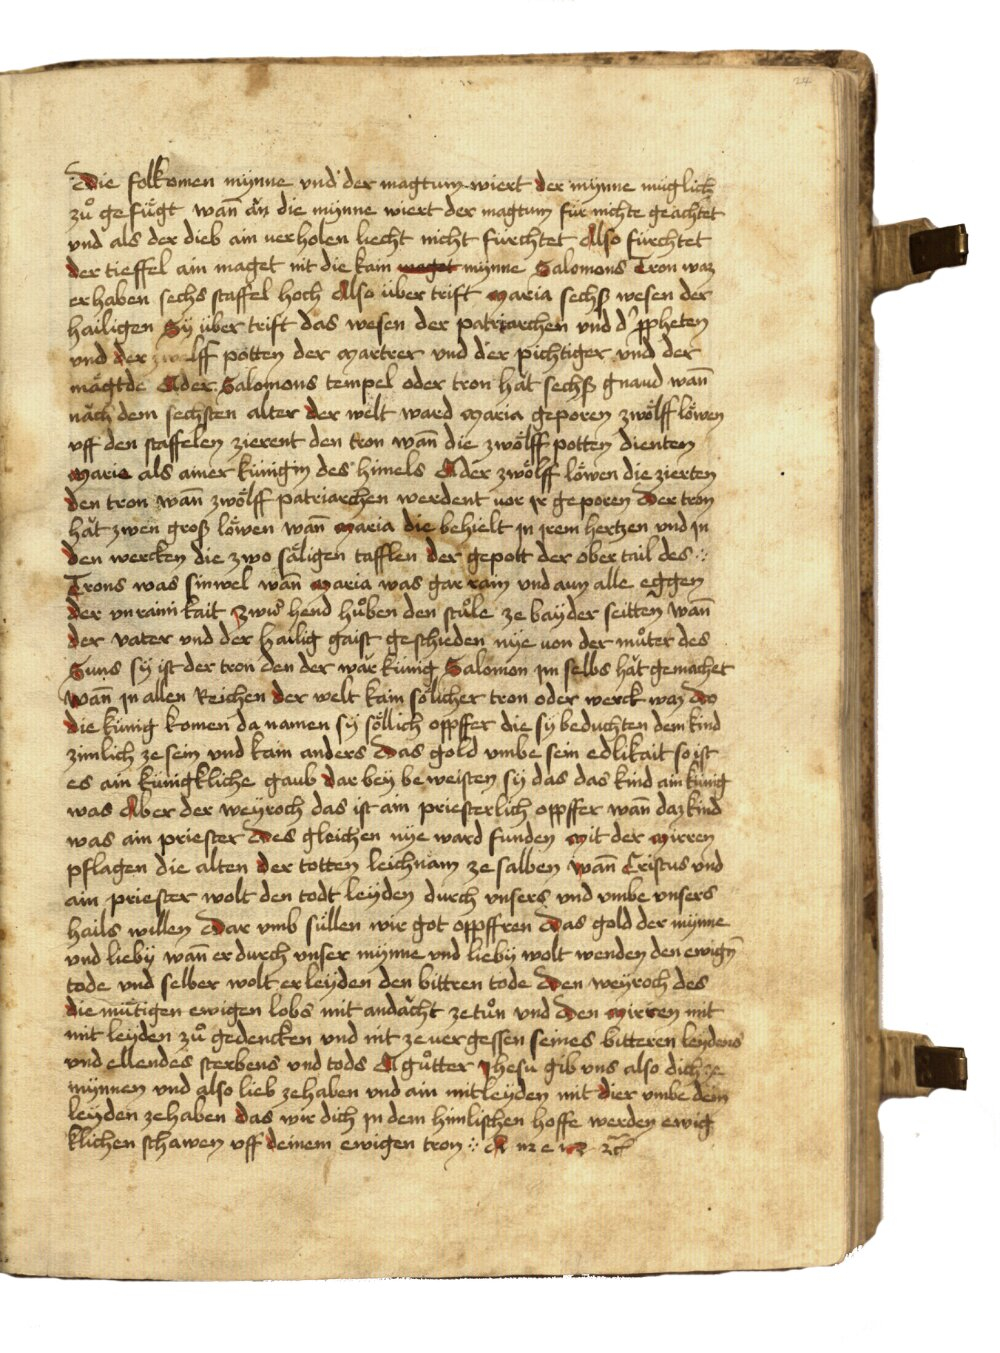 24
Die folkomen mynne vnd der magtum wiert der mynne müglich
zů gefügt wann ăn die mynne wiert der magtum für nichte geachtet
vnd als der dieb ain verholen liecht nicht fürchtet Also fürchtet
der tieffel ain maget nit die kain maget mynne Salomons Tron waz
erhaben sechs staffel hoch Also über trift maria sechß wesen der
hailigen Sÿ über trift das wesen der patriarchen vnd d' ppheten
vnd der zwelff potten der martrer vnd der pichtiger vnd der
mägtde Ader Salomons tempel oder tron hăt sechß gnaud wann̄
năch dem sechsten alter der welt ward maria geporen zwölff löwen
vff den staffelen zierent den tron wann̄ die zwölff potten dienten
maria als ainer künigin des himels Ader zwölff löwen die zierten
den tron wan̄ zwölff patriarchen werdent vor ir geporen Der tron
hăt zwen groß löwen wan̄ maria die behielt jn jrem hertzen vnd jn
den wercken die zwo säligen tafflen der gepott der ober tail des
Trons was sinwel wan̄ maria was gar rain vnd aun alle eggen
der vnrainikait Zwů hend hůben den stůle ze bayder seitten wan̄
der vater vnd der hailig gaist geschieden nye von der můter des
Suns sÿ ist der tron den der wăr künig Salomon jm selbs hăt gemachet
wan̄ jn allen Reichen der welt kain sölicher tron oder werck waz Do
die künig komen da namen sÿ söllich oppffer die sÿ beduchten dem kind
zimlich ze sein vnd kain anders Das gold vmbe sein edlikait so ist
es ain künigkliche gaub dar bey beweisten sÿ das das kind ain künig
was Aber der weyroch das ist ain priesterlich oppffer wan̄ daz kind
was ain priester Des gleichen nye ward funden Mit der mirren
pflagen die alten der totten leichnam ze salben Wan̄ Cristus vnd
ain priester wolt den todt leyden durch vnsers vnd vmbe vnsers
hails willen Dar vmb süllen wir got oppffren Das gold der mynne
vnd lieby wan̄ er durch vnser mynne vnd lieby wolt wenden den ewign̄
tode vnd selber wolt er leyden den bittren tode Den weyroch des
diemütigen ewigen lobs mit andăcht ze tůn vnd Den mirren mit
mit leyden zů gedencken vnd nit ze vergessen seines bitteren leydens
vnd ellendes sterbens vnd tods A gůtter Jhesu gib vns also dich ze
mynnen vnd also lieb ze haben vnd ain mitleyden mit dier vmbe dein
leyden ze haben das wir dich jn dem himlischen hoffe werden ewig
klichen schawen vff deinem ewigen tron Amen